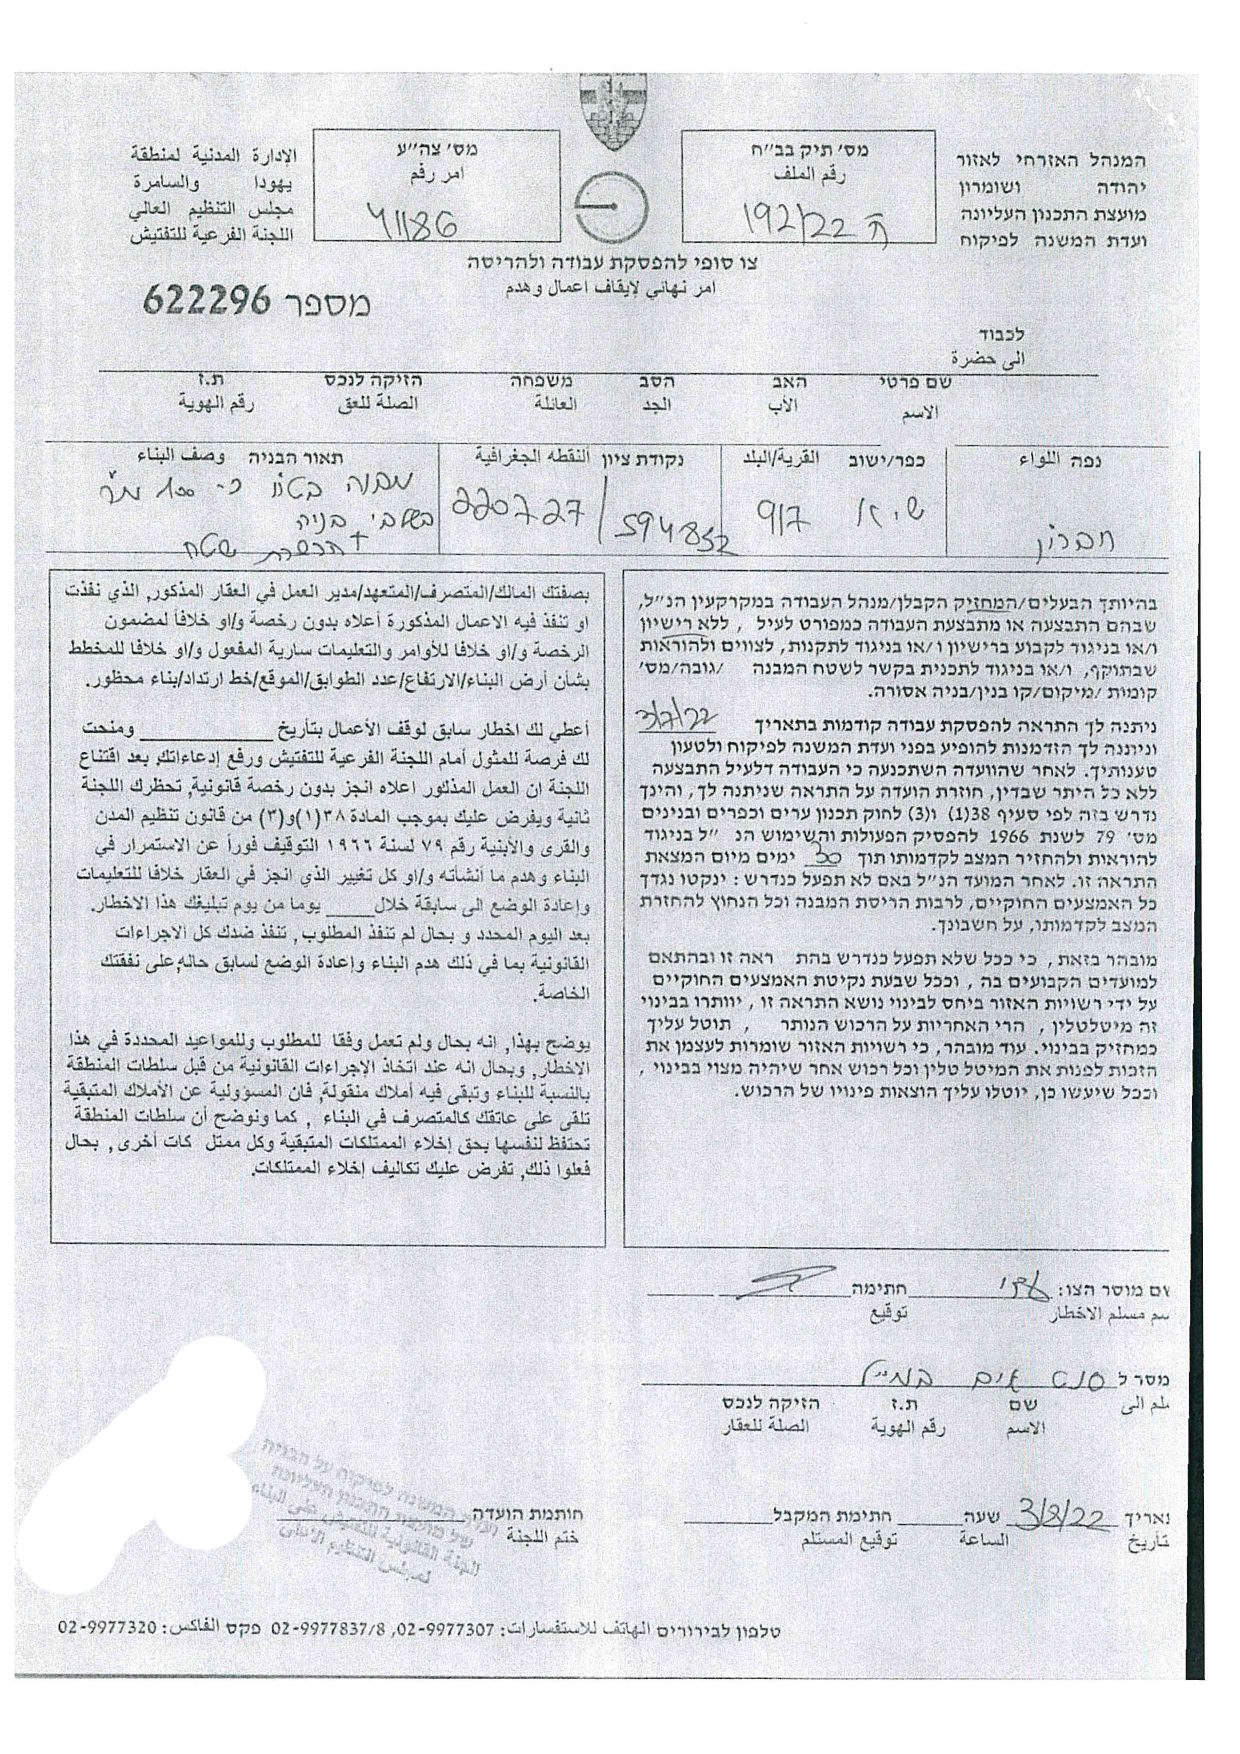 המנהל האזרחי לאזור
יהודה ושומרון
מועצת התכנון העליונה
ועדת המשנה לפיקוח
מס׳ תיק בב״ח
رقم الملف
ח 192/22
מס׳ צה״ע
امر رقم
41186
الإدارة المدنية لمنطقة
يهودا والسامرة
مجلس التنظيم العالي
اللجنة الفرعية للتفتيش
צו סופי להפסקת עבודה ולהריסה
امر نهائي لإيقاف اعمال وهدم
מספר 622296
לכבוד
الى حضرة
שם פרטי האב הסב משפחה הזיקה לנכס ת.ז
الاسم الأب الجد العائلة الصلة للعق رقم الهوية
נפה اللواء
חברון
כפר/ישוב القرية/البلد
נקודת ציון النقطه الجغرافية
220727/594832
תאור הבניה وصف البناء
מבנה בטון כ- 100 מ"ר
בשלבי בניה
+ הכשרת שטח
בהיותך הבעלים/המחזיק הקבלן/מנהל העבודה במקרקעין הנ״ל,
שבהם התבצעה או מתבצעת העבודה כמפורט לעיל , ללא רישיון
ו/או בניגוד לקבוע ברישיון ו/או בניגוד לתקנות, לצווים ולהוראות
שבתוקף, ו/או בניגוד לתכנית בקשר לשטח המבנה /גובה/מס׳
קומות /מיקום/קו בנין/בניה אסורה.
ניתנה לך התראה להפסקת עבודה קודמות בתאריך 3/7/22
וניתננה לך הזדמנות להופיע בפני ועדת המשנה לפיקוח ולטעון
טענותיך. לאחר שהוועדה השתכנעה כי העבודה דלעיל התבצעה
ללא כל היתר שבדין, חוזרת הועדה על התראה שניתנה לך, והינך
נדרש בזה לפי סעיף 38(1) ו(3) לחוק תכנון ערים וכפרים ובנינים
מס׳ 79 לשנת 1966 להפסיק הפעולות והשימוש הנ ״ל בניגוד
להוראות ולהחזיר המצב לקדמותו תוך 30 ימים מיום המצאת
התראה זו. לאחר המועד הנ״ל באם לא תפעל כנדרש : ינקטו נגדך
כל האמצעים החוקיים, לרבות הריסת המבנה וכל הנחוץ להחזרת
המצב לקדמותו, על חשבונך.
מובהר בזאת , כי ככל שלא תפעל כנדרש בהת ראה זו ובהתאם
למועדים הקבועים בה , וככל שבעת נקיטת האמצעים החוקיים
על ידי רשויות האזור ביחס לבינוי נושא התראה זו , יוותרו בבינוי
זה מיטלטלין , הרי האחריות על הרכוש הנותר , תוטל עליך
כמחזיק בבינוי. עוד מובהר, כי רשויות האזור שומרות לעצמן את
הזכות לפנות את המיטל טלין וכל רכוש אחר שיהיה מצוי בבינוי ,
וככל שיעשו כן, יוטלו עליך הוצאות פינויו של הרכוש.
بصفتك المالك/المتصرف/المتعهد/مدير العمل في العقار المذكور, الذي نفذت
او تنفذ فيه الاعمال المذكورة أعلاه بدون رخصة و/او خلافاً لمضمون
الرخصة و/او خلافا للأوامر والتعليمات سارية المفعول و/او خلافا للمخطط
بشأن أرض البناء/الارتفاع/عدد الطوابق/الموقع/خط ارتداد/بناء محظور.
أعطي لك اخطار سابق لوقف الأعمال بتأريخ ____________ ومنحت
لك فرصة للمثول أمام اللجنة الفرعية للتفتيش ورفع إدعاءاتك, بعد اقتناع
اللجنة ان العمل المذكور اعلاه انجز بدون رخصة قانونية, تحظرك اللجنة
ثانية ويفرض عليك بموجب المادة ٣٨(١)و(٣) من قانون تنظيم المدن
والقرى والأبنية رقم ٧٩ لسنة ١٩٦٦ التوقيف فوراً عن الاستمرار في
البناء وهدم ما أنشأته و/او كل تغيير الذي انجز في العقار خلافا للتعليمات
وإعادة الوضع الى سابقة خلال____ يوما من يوم تبليغك هذا الاخطار.
بعد اليوم المحدد و بحال لم تنفذ المطلوب, تنفذ ضدك كل الاجراءات
القانونية بما في ذلك هدم البناء وإعادة الوضع لسابق حاله,على نفقتك
الخاصة.
يوضح بهذا, انه بحال ولم تعمل وفقا للمطلوب وللمواعيد المحددة في هذا
الاخطار, وبحال انه عند اتخاذ الإجراءات القانونية من قبل سلطات المنطقة
بالنسبة للبناء وتبقى فيه أملاك منقولة, فان المسؤولية عن الأملاك المتبقية
تلقى على عاتقك كالمتصرف في البناء , كما ونوضح أن سلطات المنطقة
تحتفظ لنفسها بحق إخلاء الممتلكات المتبقية وكل ممتل كات أخرى, بحال
فعلوا ذلك, تفرض عليك تكاليف إخلاء الممتلكات.
שם מוסר הצו: חתימה
سم مسلم الاخطار توقيع
מסר ל
שם ת.ז הזיקה לנכס
لم الى الاسم رقم الهوية الصلة للعقار
תאריך 3/8/22 שעה חתימת המקבל
تأريخ الساعة توقيع المستلم
חותמת הועדה
ختم اللجنة
ועדת המשנה לפיקוח על הבניה
של מועצת התכנון העליונה
اللجنة القانونية للتفتيش على البناء
لمجلس التنظيم الأعلى
טלפון לבירורים الهاتف للاستفسارات: 02-9977307, 02-9977837/8 פקס الفاكس: 02-9977320